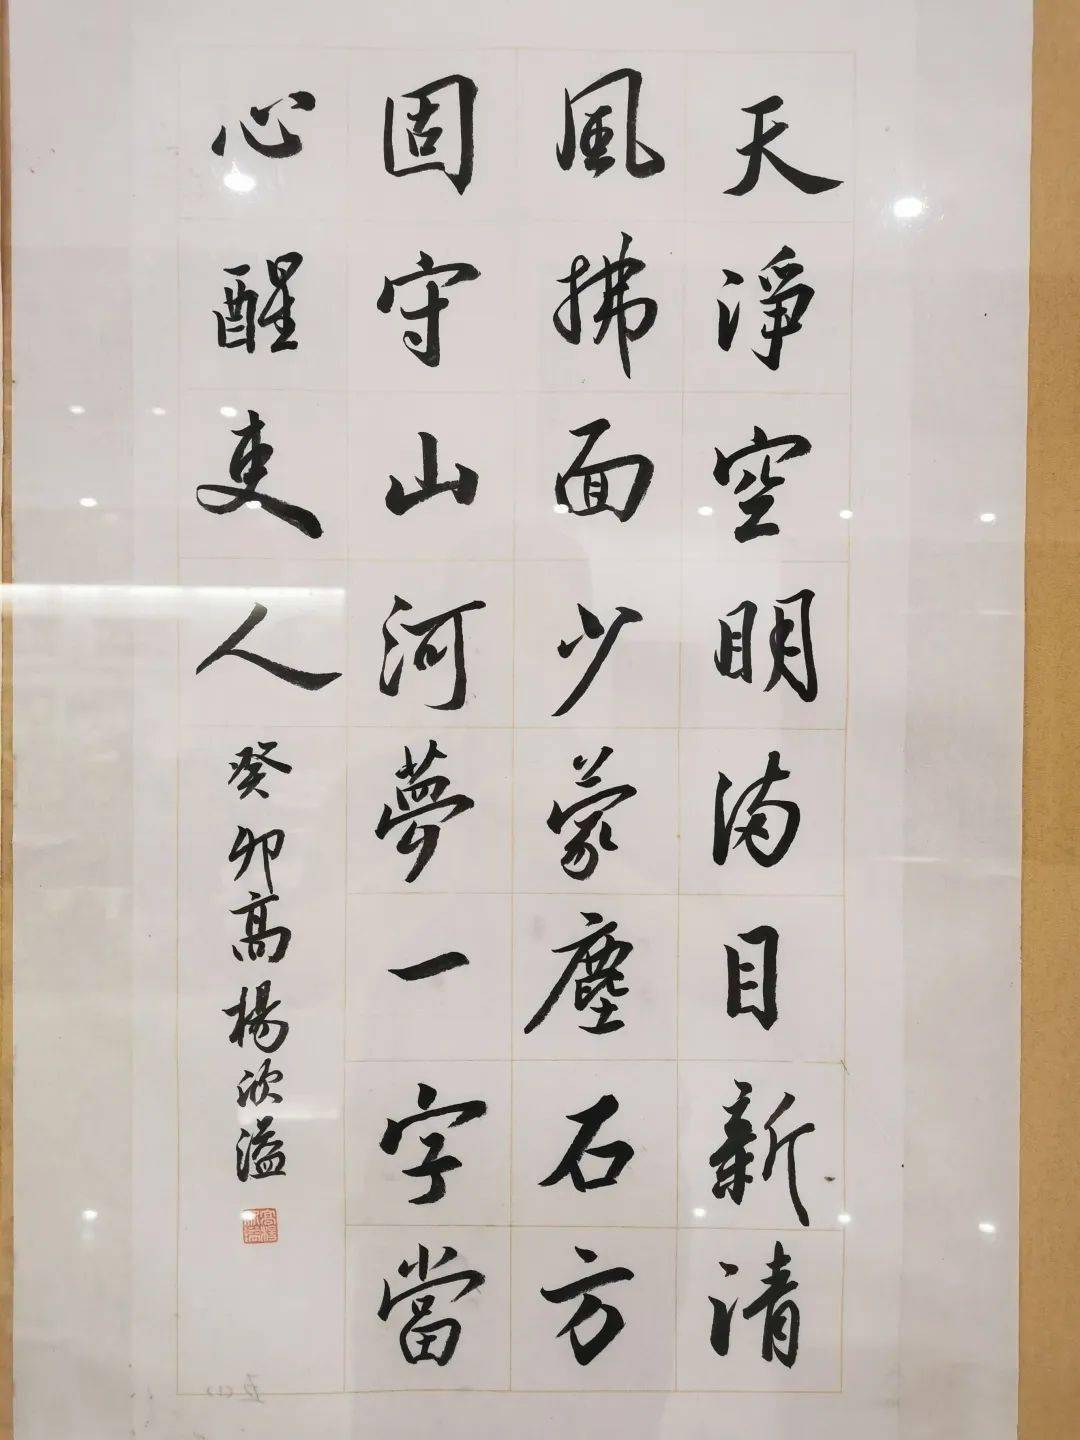 天淨空明滿目新清
風拂面少蒙塵石方
固守山河夢一字當
心醒吏人
癸卯高楊欣溢